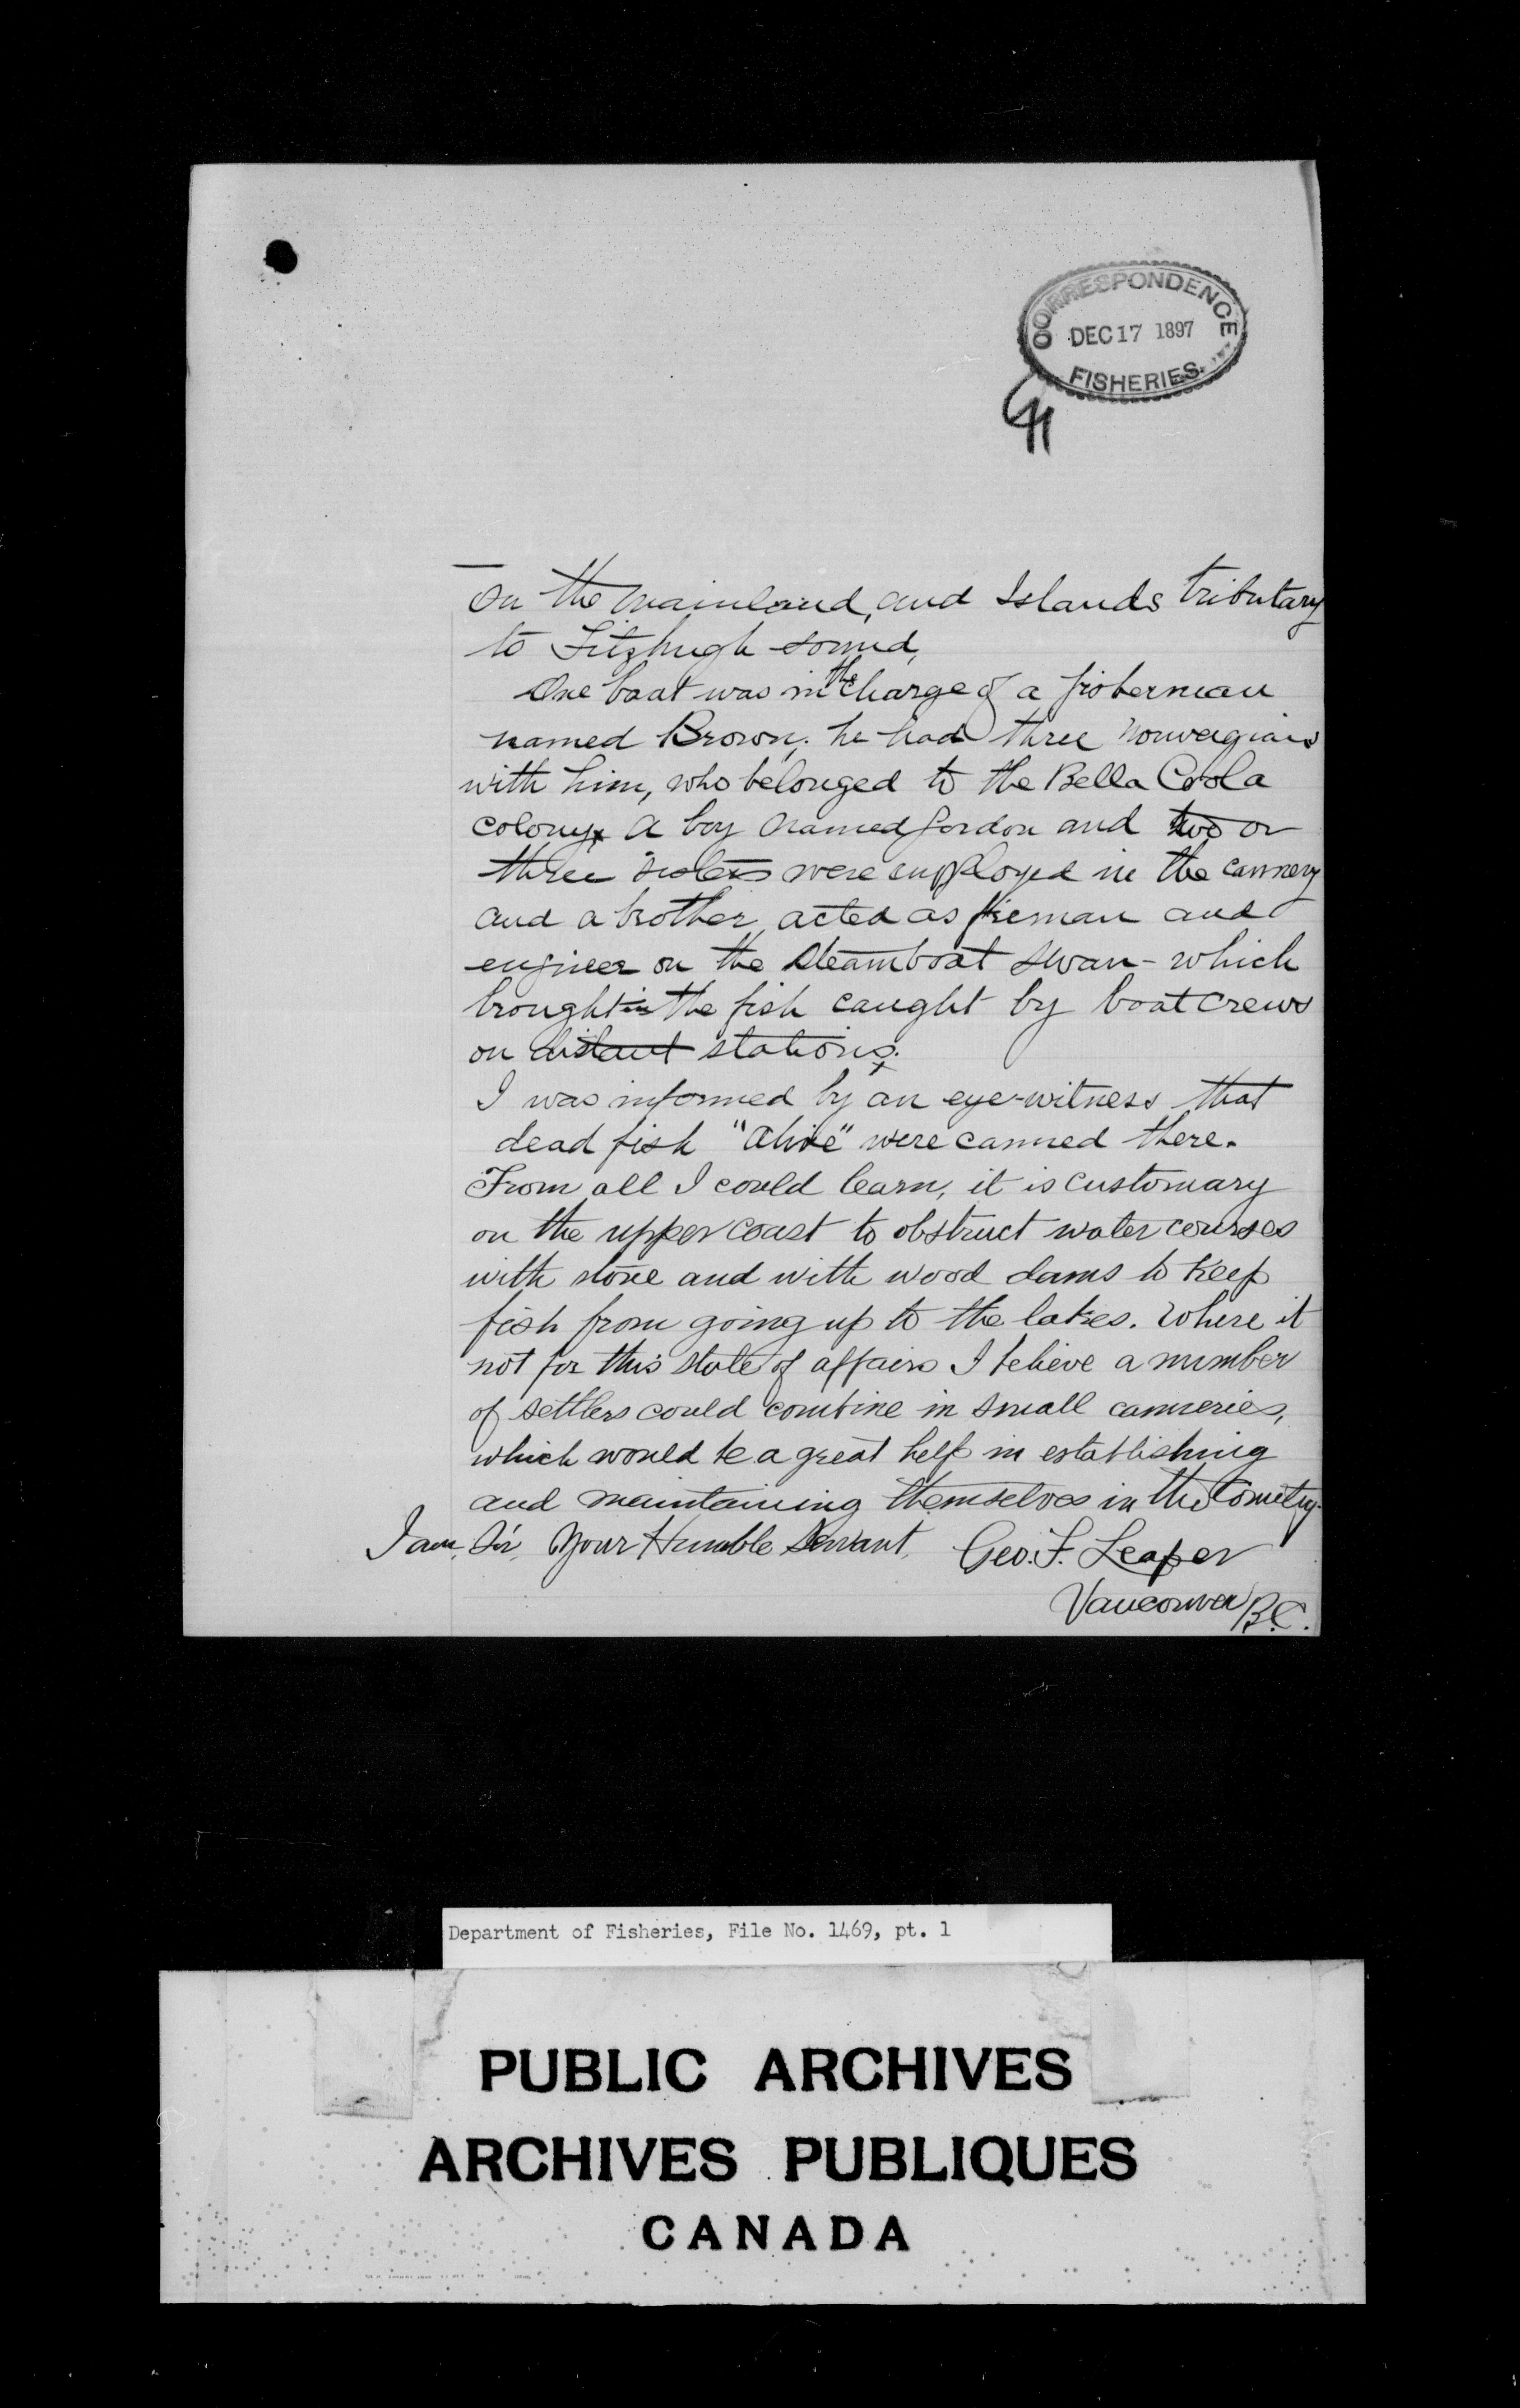 CORRESPONDENCE
DEC 17 1897
FISHERIES
on the mainland, and Islands tributary
to Fitzhugh sound,
One boat was in the charge of a fisherman
named Brown; he had three Norwegians
with him, who belonged to the Bella Coola
colony. A boy named Gordon and two or
three sisters were employed in the cannery
and a brother acted as fireman and
engineer on the Steamboat Swan - which
brought in the fish caught by boat crews
on distant stations.
I was informed by an eye-witness that
dead fish "Alive" were canned there.
From all I could learn, it is customary
on the upper coast to obstruct water courses
with stone and with wood dams to keep
fish from going up to the lakes. Where it
not for this state of affairs I believe a number
of settlers could combine in small canneries,
which would be a great help in establishing
and maintaining themselves in the Country.
I am, Sir, Your Humble Servant, Geo. F. Leaper
Vancouver B.C.
Department of Fisheries, File No. 1469, pt. 1
PUBLIC ARCHIVES
ARCHIVES PUBLIQUES
CANADA